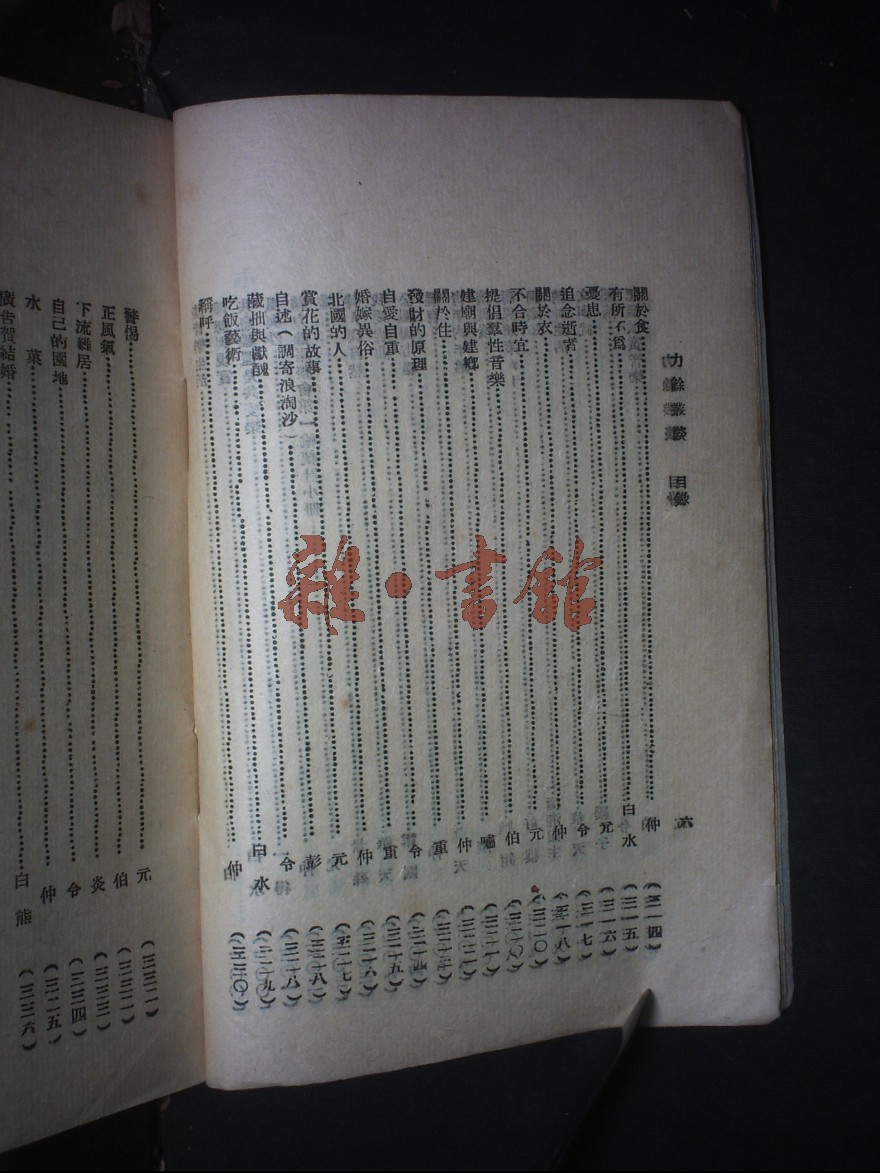 力餘叢談 目錄 六
關於食……仲（三一四）
有所不爲……白水（三一五）
憂患……元（三一六）
追念逝者……令（三一七）
關於衣……仲（三一八）
不合時宜……元（三二〇）
提倡羣性音樂……伯
建廟與建鄉……嘯
關於住……仲（三二二）
發財的原理……重（三二三）
自愛自重……令（三二四）
婚嫁異俗……重（三二五）
北國的人……仲（三二六）
賞花的故事……元（三二七）
自述（調寄浪淘沙）……彭（三二八）
藏拙與獻醜……令（三二八）
吃飯藝術……白水（三二九）
稱呼……仲（三三〇）
警惕……元（三三一）
正風氣……伯（三三二）
下流雜居……炎（三三三）
自己的園地……令（三三四）
水菓……仲
廣告賀結婚……白熊（三三六）
雜·書館